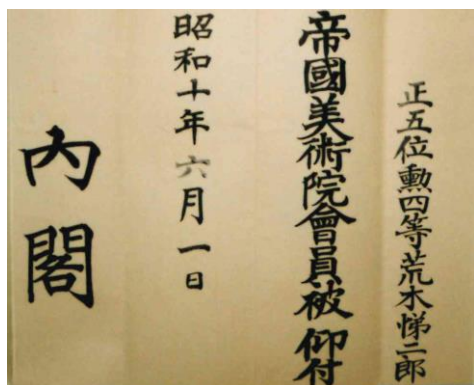 正五位勲四等荒木悌二郎
帝國美術院會員被 仰付
昭和十年六月一日
内閣